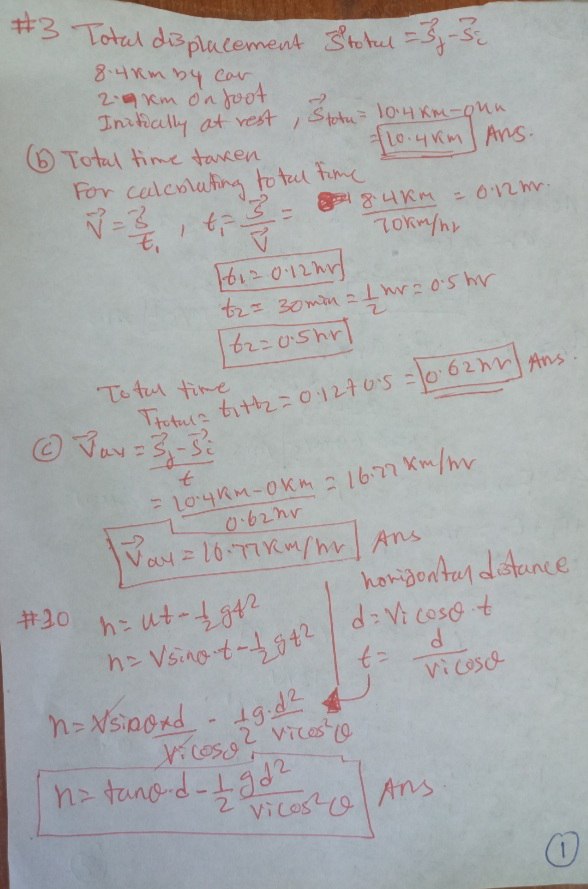 #3 Total displacement S⃗total = S⃗f - S⃗i
8.4Km by car
2.0 Km on foot
Initially at rest, S⃗total = 10.4Km - 0Km
= 10.4Km Ans.
(b) Total time taken
For calculating total time
V⃗ = S⃗/t₁, t₁ = S⃗/V⃗ = 8.4Km/70Km/hr = 0.12hr.
t₁ = 0.12hr
t₂ = 30min = 1/2 hr = 0.5hr
t₂ = 0.5hr
Total time
Ttotal = t₁+t₂ = 0.12+0.5 = 0.62hr Ans.
(c) V⃗av = S⃗f - S⃗i/t
= 10.4Km - 0Km/0.62hr = 16.77Km/hr
V⃗av = 16.77Km/hr Ans
#30 h = ut - 1/2 gt²
h = Vsinθ.t - 1/2 gt²
horizontal distance
d = Vi cosθ.t
t = d/Vi cosθ
h = Vsinθ×d/Vi cosθ - 1/2 g.d²/Vi cos²θ
h = tanθ.d - 1/2 gd²/Vi cos²θ Ans.
1